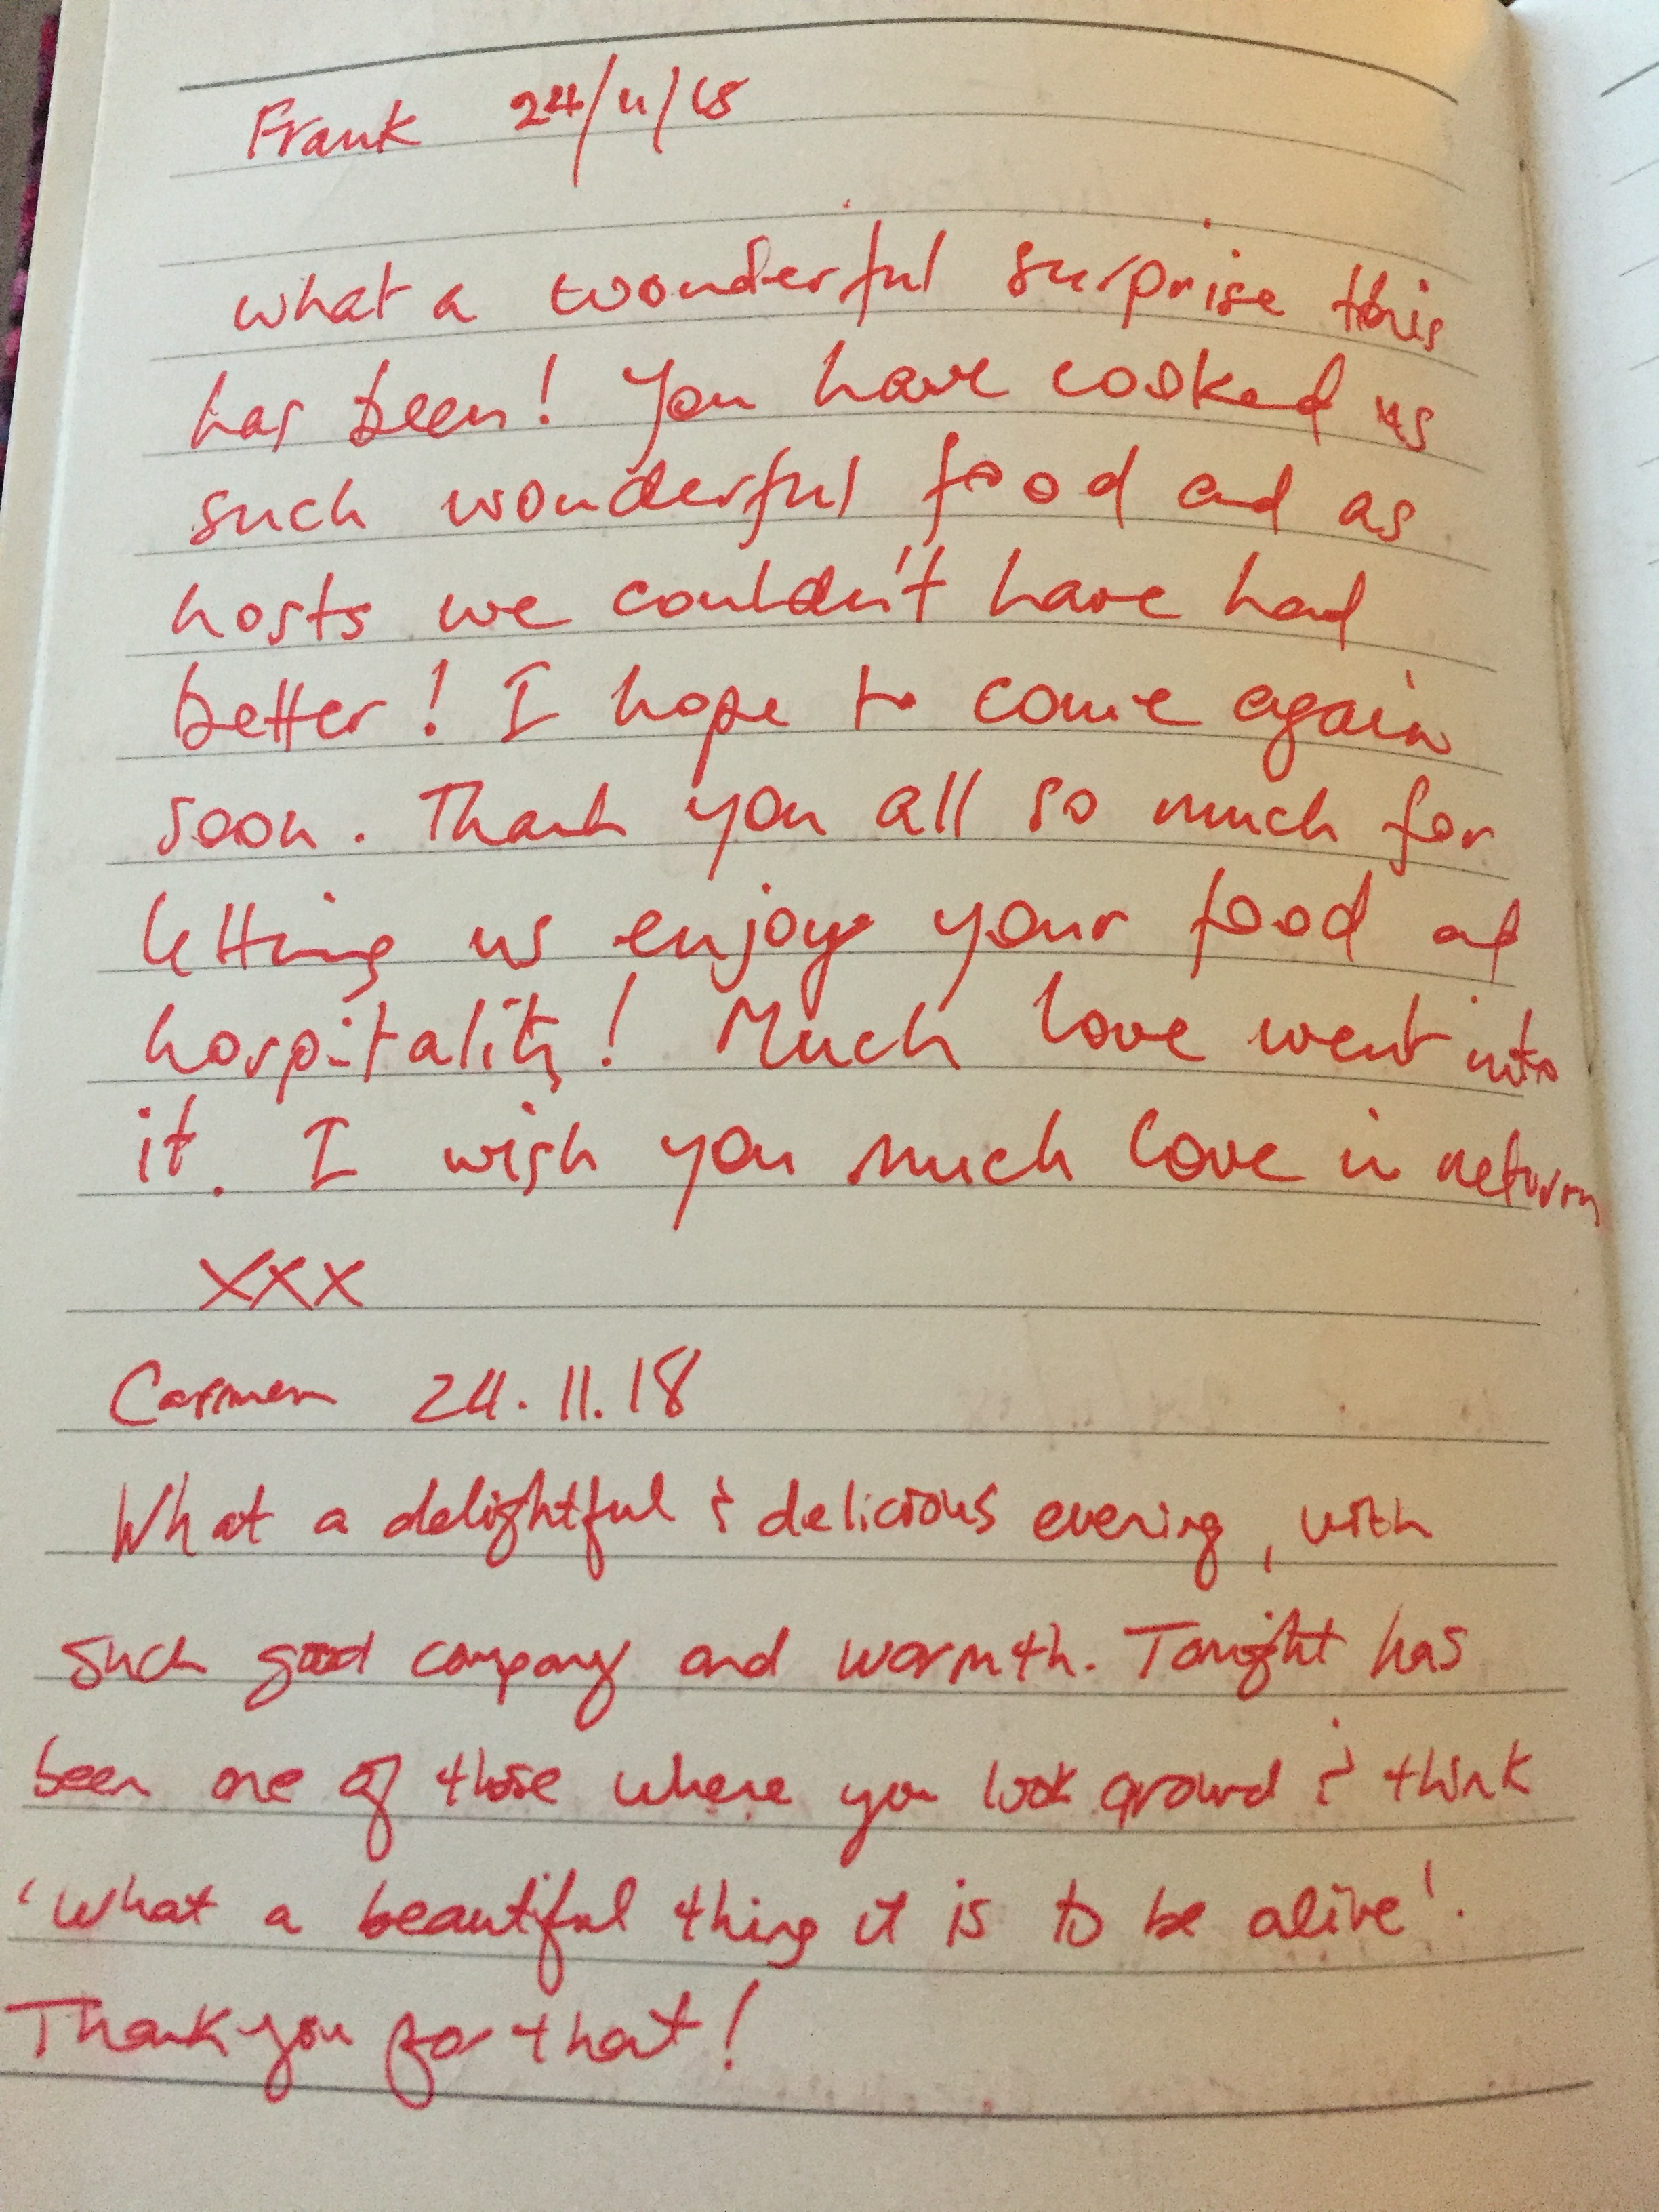 Frank 24/11/18
what a wonderful surprise this
has been! You have cooked us
such wonderful food and as
hosts we couldn't have had
better! I hope to come again
soon. Thank you all so much for
letting us enjoy your food and
hospitality! Much love went into
it. I wish you much love in return
XXX
Carmen 24.11.18
What a delightful & delicious evening, with
such good company and warmth. Tonight has
been one of those where you look around & think
'What a beautiful thing it is to be alive'.
Thank you for that!